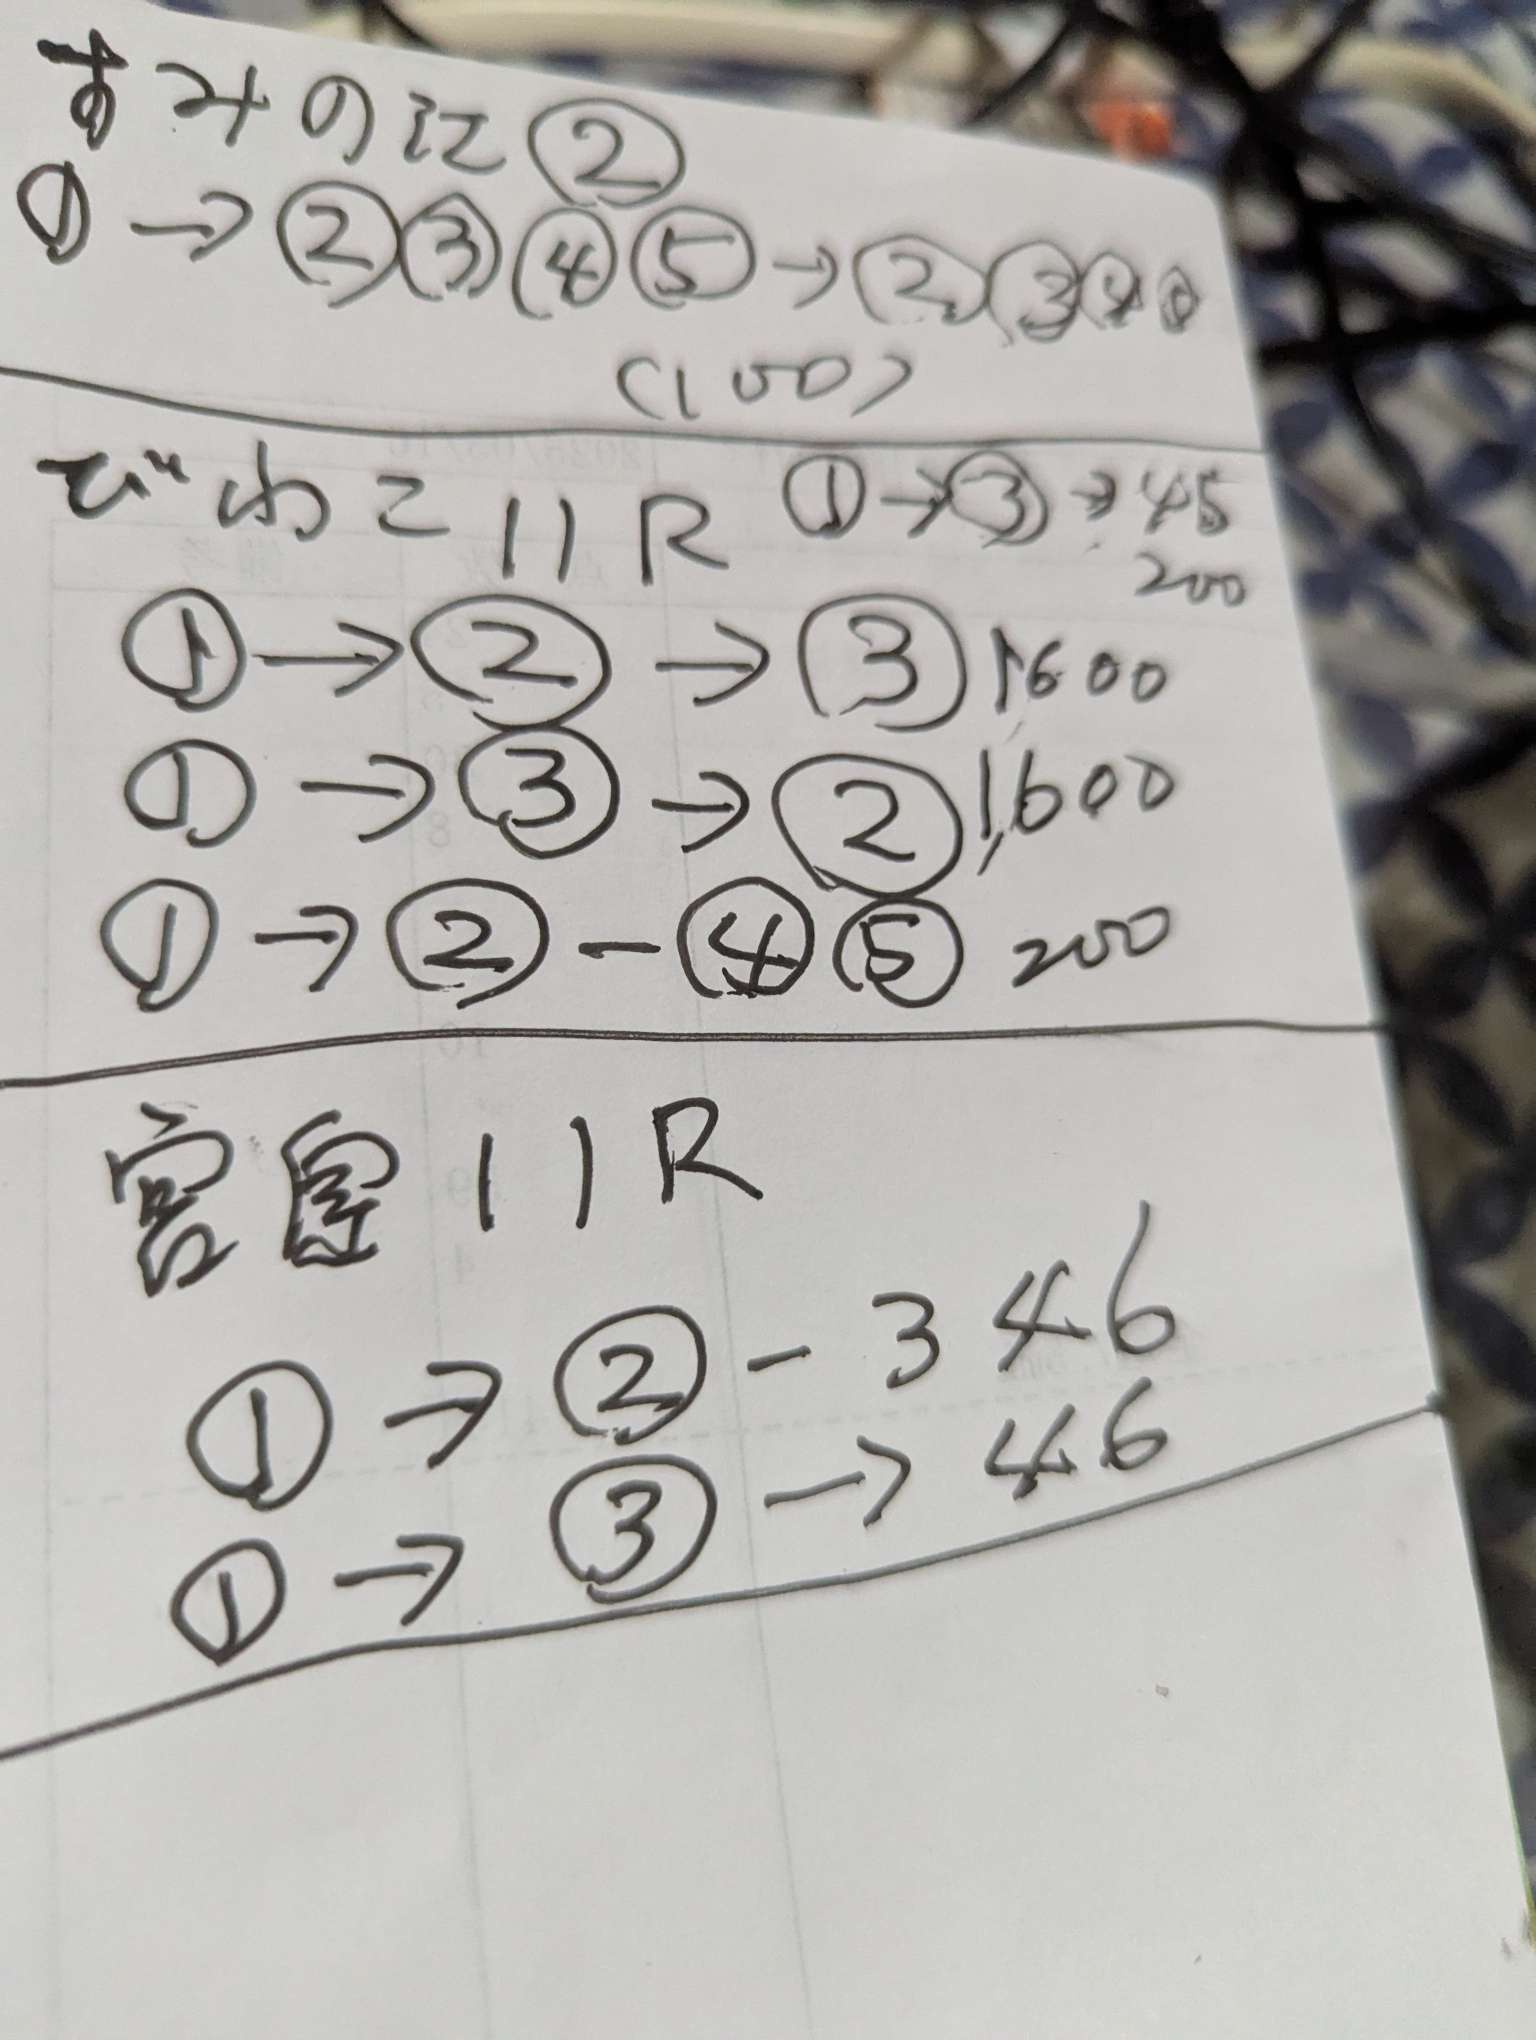 すみの江②
①→②③④⑤→②③④
(100)
びわこ11R ①→③→45
200
①→②→③1,600
①→③→②1,600
①→②-④⑤ 200
宮島11R
①→②-346
①→③→46